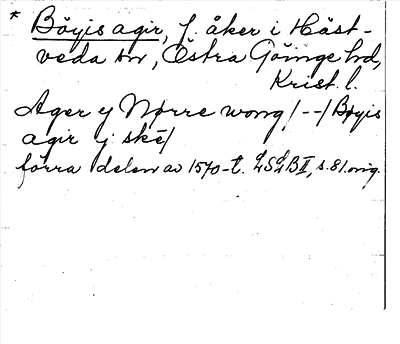 * Böyis agir, f. åker i Häst-
veda sn, Östra Göinge hd,
Krist. l.
Ager ej Nørre wong / -- / Bøyis
agir ij skē /
förra delen av 1570-t. LSLB II, s. 81. orig.